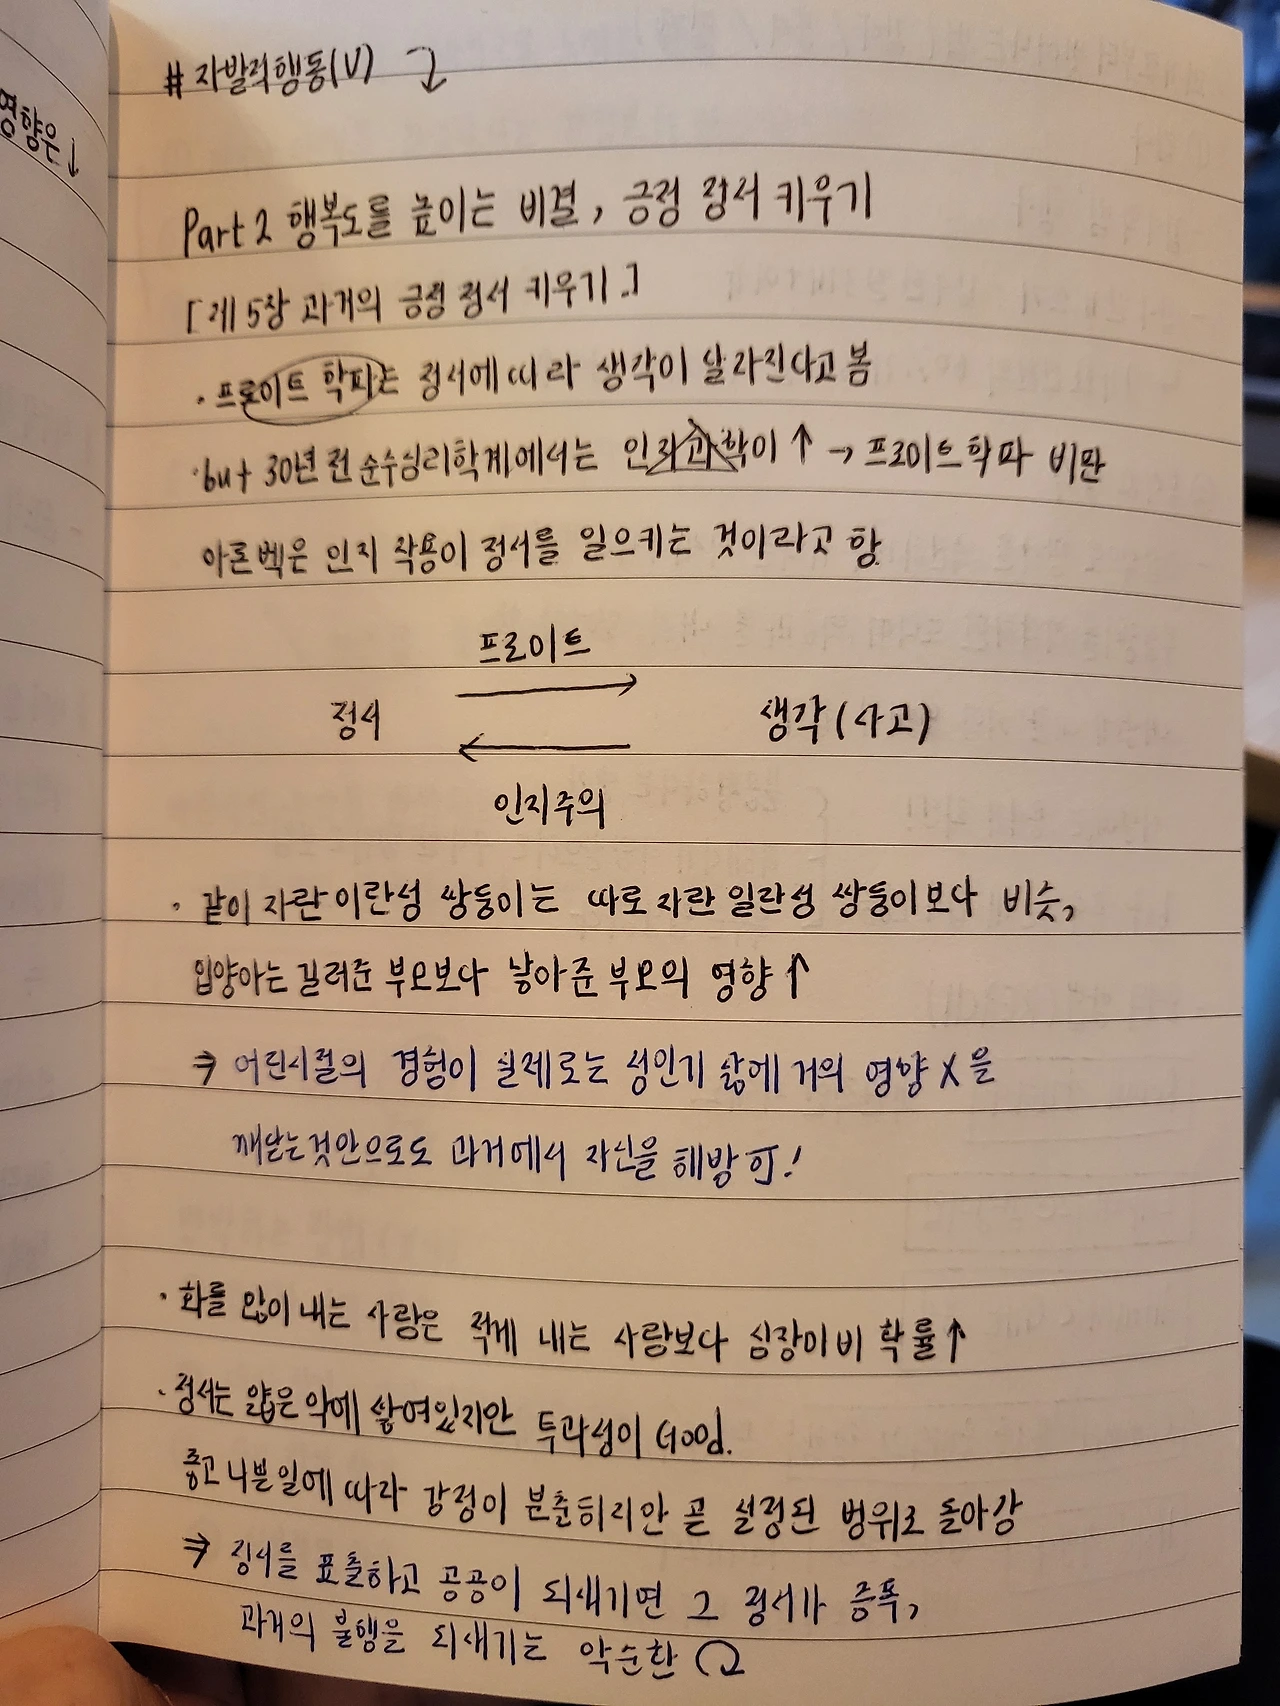 영향은↓
# 자발적행동(V) ⤵
Part 2 행복도를 높이는 비결, 긍정 정서 키우기
[제 5장 과거의 긍정 정서 키우기.]
· 프로이트 학파는 정서에 따라 생각이 달라진다고 봄
· but 30년 전 순수심리학계에서는 인지과학이 ↑ → 프로이트학파 비판
아론벡은 인지 작용이 정서를 일으키는 것이라고 함
프로이트
정서 → 생각(사고)
←
인지주의
· 같이 자란 이란성 쌍둥이는 따로 자란 일란성 쌍둥이보다 비슷,
입양아는 길러준 부모보다 낳아준 부모의 영향↑
⇒ 어린시절의 경험이 실제로는 성인기 삶에 거의 영향 X 을
깨닫는것만으로도 과거에서 자신을 해방 可!
· 화를 많이 내는 사람은 적게 내는 사람보다 심장마비 확률↑
· 정서는 얇은 막에 쌓여있지만 투과성이 Good.
좋고 나쁜일에 따라 감정이 분출되지만 곧 설정된 범위로 돌아감
⇒ 정서를 표출하고 곰곰이 되새기면 그 정서가 증폭,
과거의 불행을 되새기는 악순환